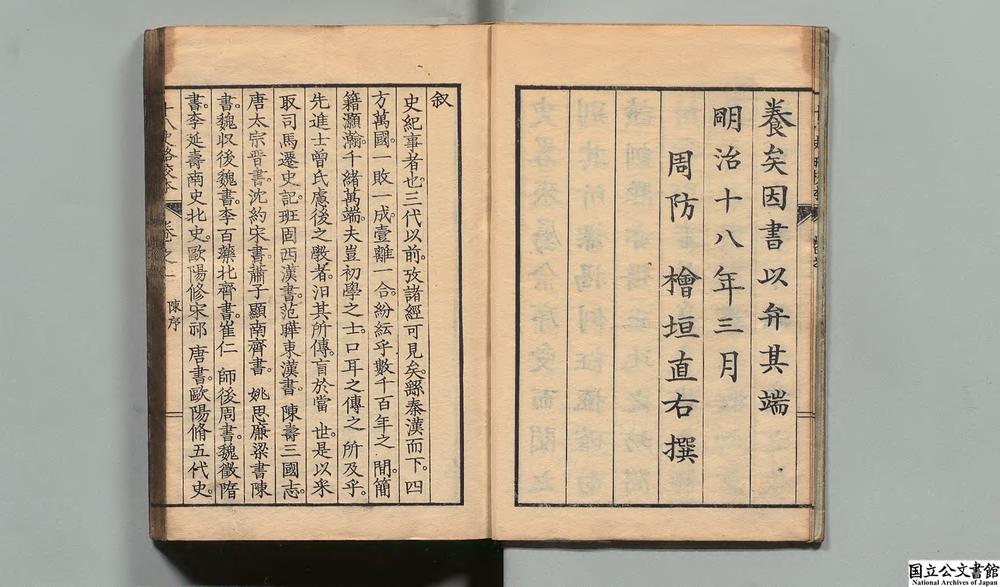 養矣因書以弁其端
明治十八年三月
周防 檜垣直右撰
叙
史紀事者也。三代以前。攷諸經可見矣。繇秦漢而下。四
方萬國。一敗一成。壹離一合。紛紜乎數千百年之間。簡
籍灝瀚。千緒萬端。夫豈初學之士。口耳之傳之所及乎。
先進士曾氏慮後之斅者。汨其所傳。盲於當世。是以采
取司馬遷史記。班固西漢書。范曄東漢書。陳壽三國志。
唐太宗晋書。沈約宋書。蕭子顯南齊書。姚思廉梁書陳
書。魏収後魏書。李百藥北齊書。崔仁師後周書。魏徵隋
書。李延壽南史北史。歐陽修宋祁唐書。歐陽脩五代史。
十八史略校本 卷之一 陳序
国立公文書館
National Archives of Japan